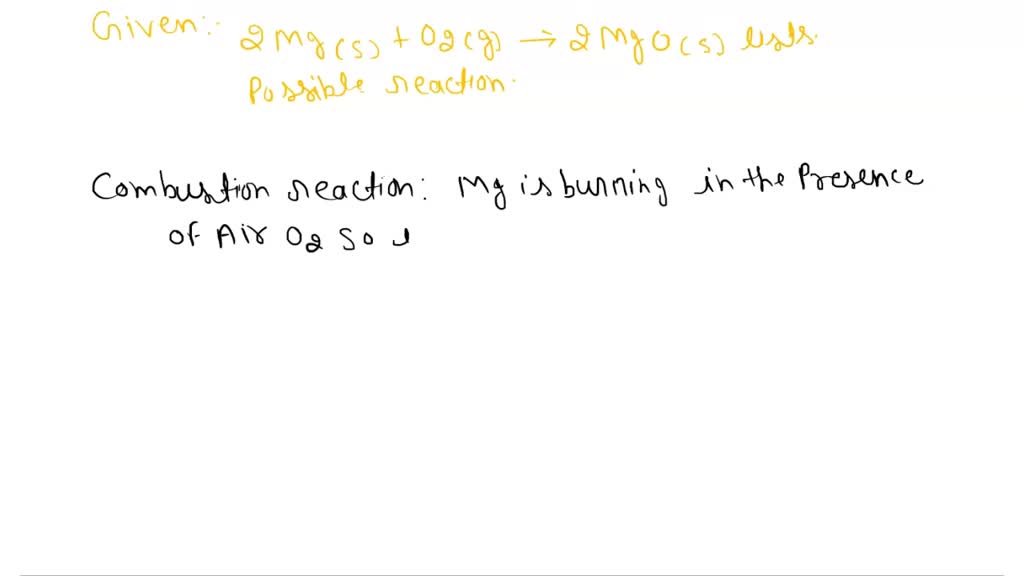 Given:-
2Mg(s) + O2(g) → 2MgO(s) lists.
Possible reaction.
Combustion reaction: Mg is burning in the Presence
of Air O2 So